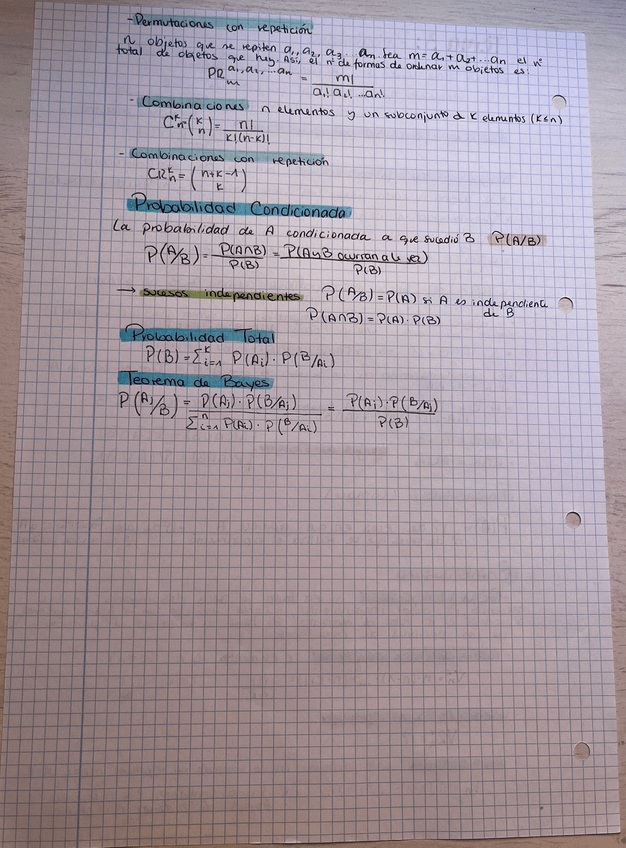 - Permutaciones con repetición
n objetos que se repiten a₁, a₂, a₃... aₙ. Sea m = a₁ + a₂ + ... aₙ el nº
total de objetos que hay. Así, el nº de formas de ordenar m objetos es:
PR_m^{a₁, a₂, ... aₙ} = m! / (a₁! a₂! ... aₙ!)
- Combinaciones n elementos y un subconjunto de k elementos (k≤n)
C_n^k = (k n) = n! / (k!(n-k)!)
- Combinaciones con repetición
CR_n^k = (n+k-1 k)
Probabilidad Condicionada
La probabilidad de A condicionada a que sucedió B P(A/B)
P(A/B) = P(A∩B) / P(B) = P(A y B ocurran a la vez) / P(B)
→ sucesos independientes P(A/B) = P(A) si A es independiente de B
P(A∩B) = P(A) · P(B)
Probabilidad Total
P(B) = Σ_{i=1}^k P(Ai) · P(B/Ai)
Teorema de Bayes
P(Aj/B) = P(Aj) · P(B/Aj) / Σ_{i=1}^n P(Ai) · P(B/Ai) = P(Aj) · P(B/Aj) / P(B)